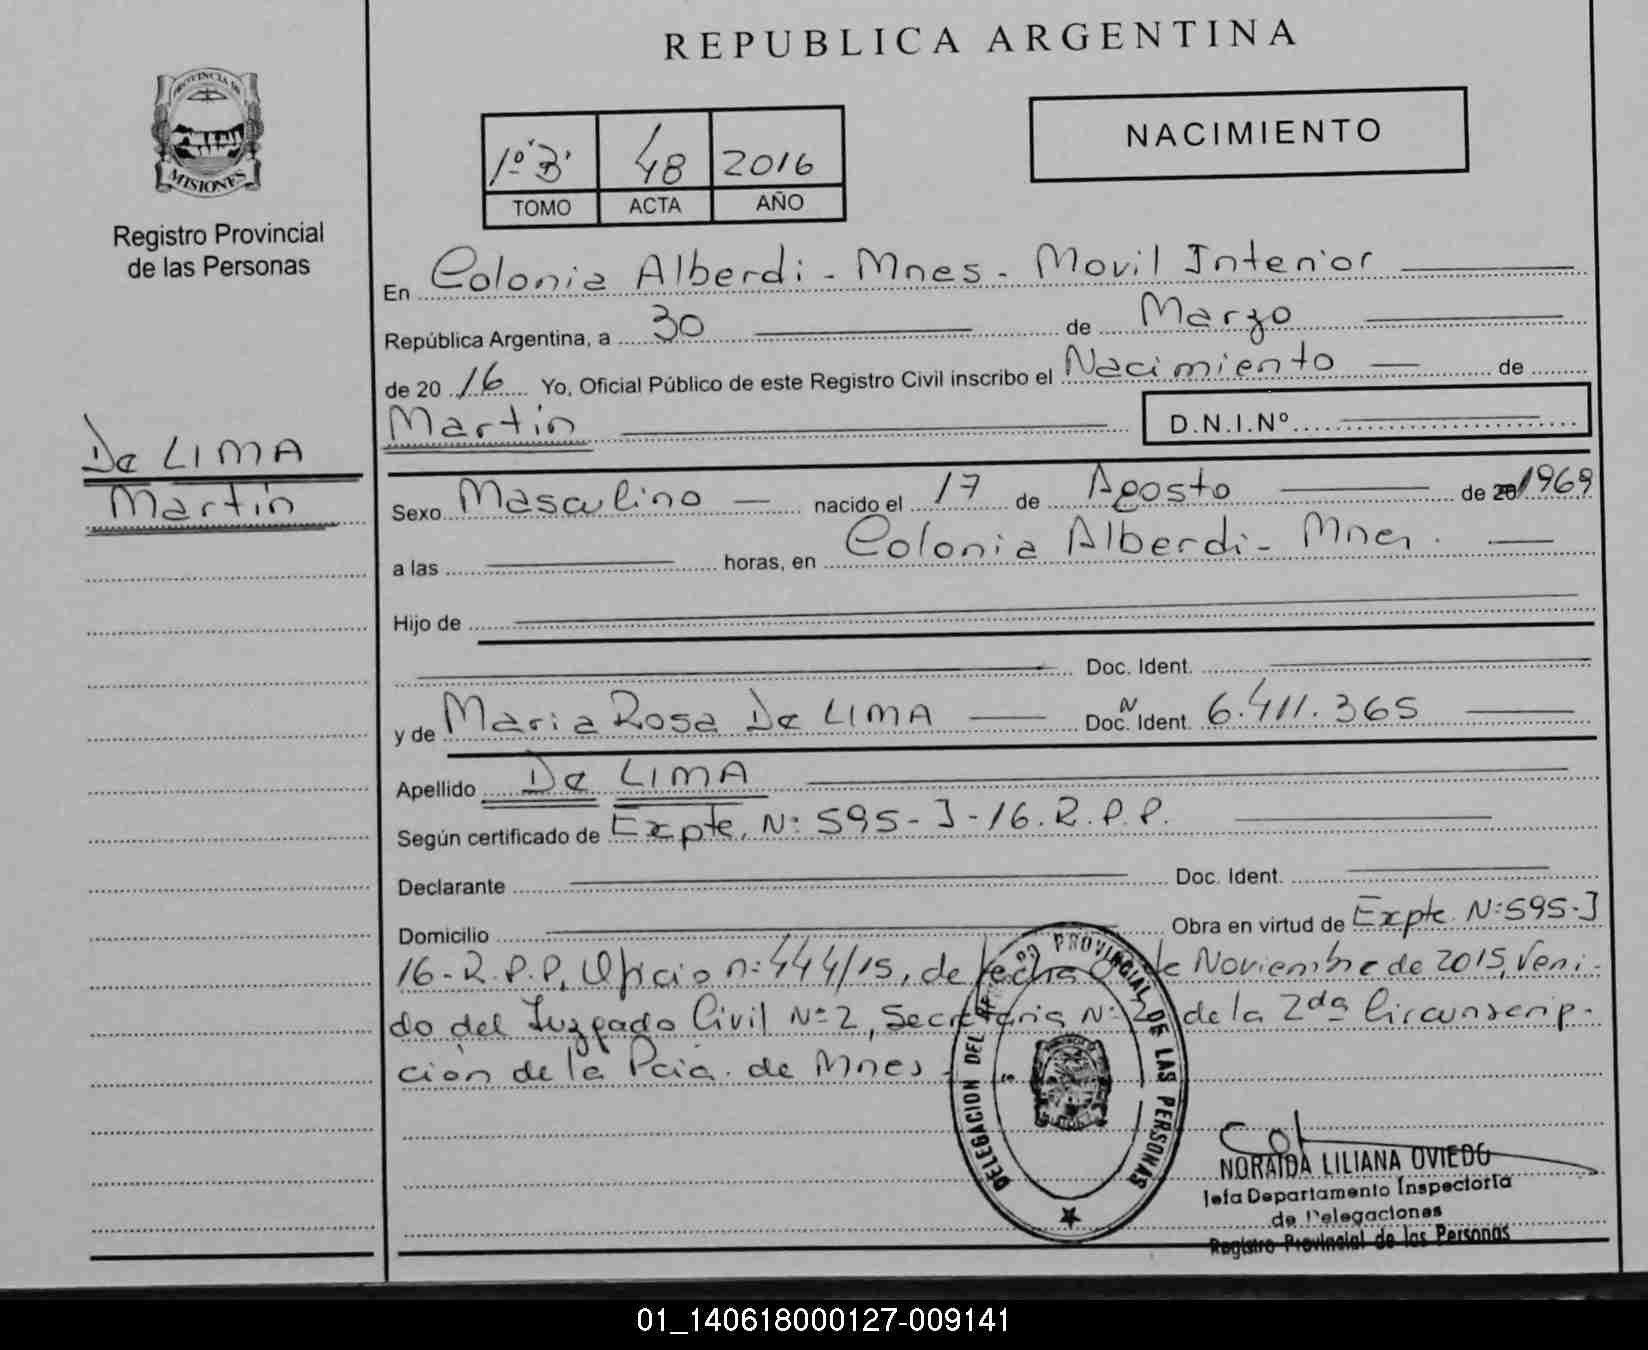 REPUBLICA ARGENTINA
PROVINCIA DE
MISIONES
Registro Provincial
de las Personas
1º "B" 48 2016
TOMO ACTA AÑO
NACIMIENTO
De LIMA
Martin
En Colonia Alberdi - Mnes - Movil Interior
República Argentina, a 30 de Marzo
de 20 16 Yo, Oficial Público de este Registro Civil inscribo el Nacimiento de
Martin D.N.I.Nº
Sexo Masculino nacido el 17 de Agosto de 20 1969
a las horas, en Colonia Alberdi - Mnes.
Hijo de
Doc. Ident.
y de Maria Rosa De LIMA Doc. N Ident. 6.411.365
Apellido De LIMA
Según certificado de Expte. Nº 595-J-16.R.P.P.
Declarante Doc. Ident.
Domicilio Obra en virtud de Expte. Nº 595-J
16-R.P.P, Oficio nº 444/15, de fecha de Noviembre de 2015, Veni-
do del Juzgado Civil Nº 2, Secretaria Nº 2 de la 2da Circunscrip-
ción de la Pcia. de Mnes
DELEGACION DEL REGISTRO PROVINCIAL DE LAS PERSONAS
NORAIDA LILIANA OVIEDO
Jefa Departamento Inspectoria
de Delegaciones
Registro Provincial de las Personas
01_140618000127-009141